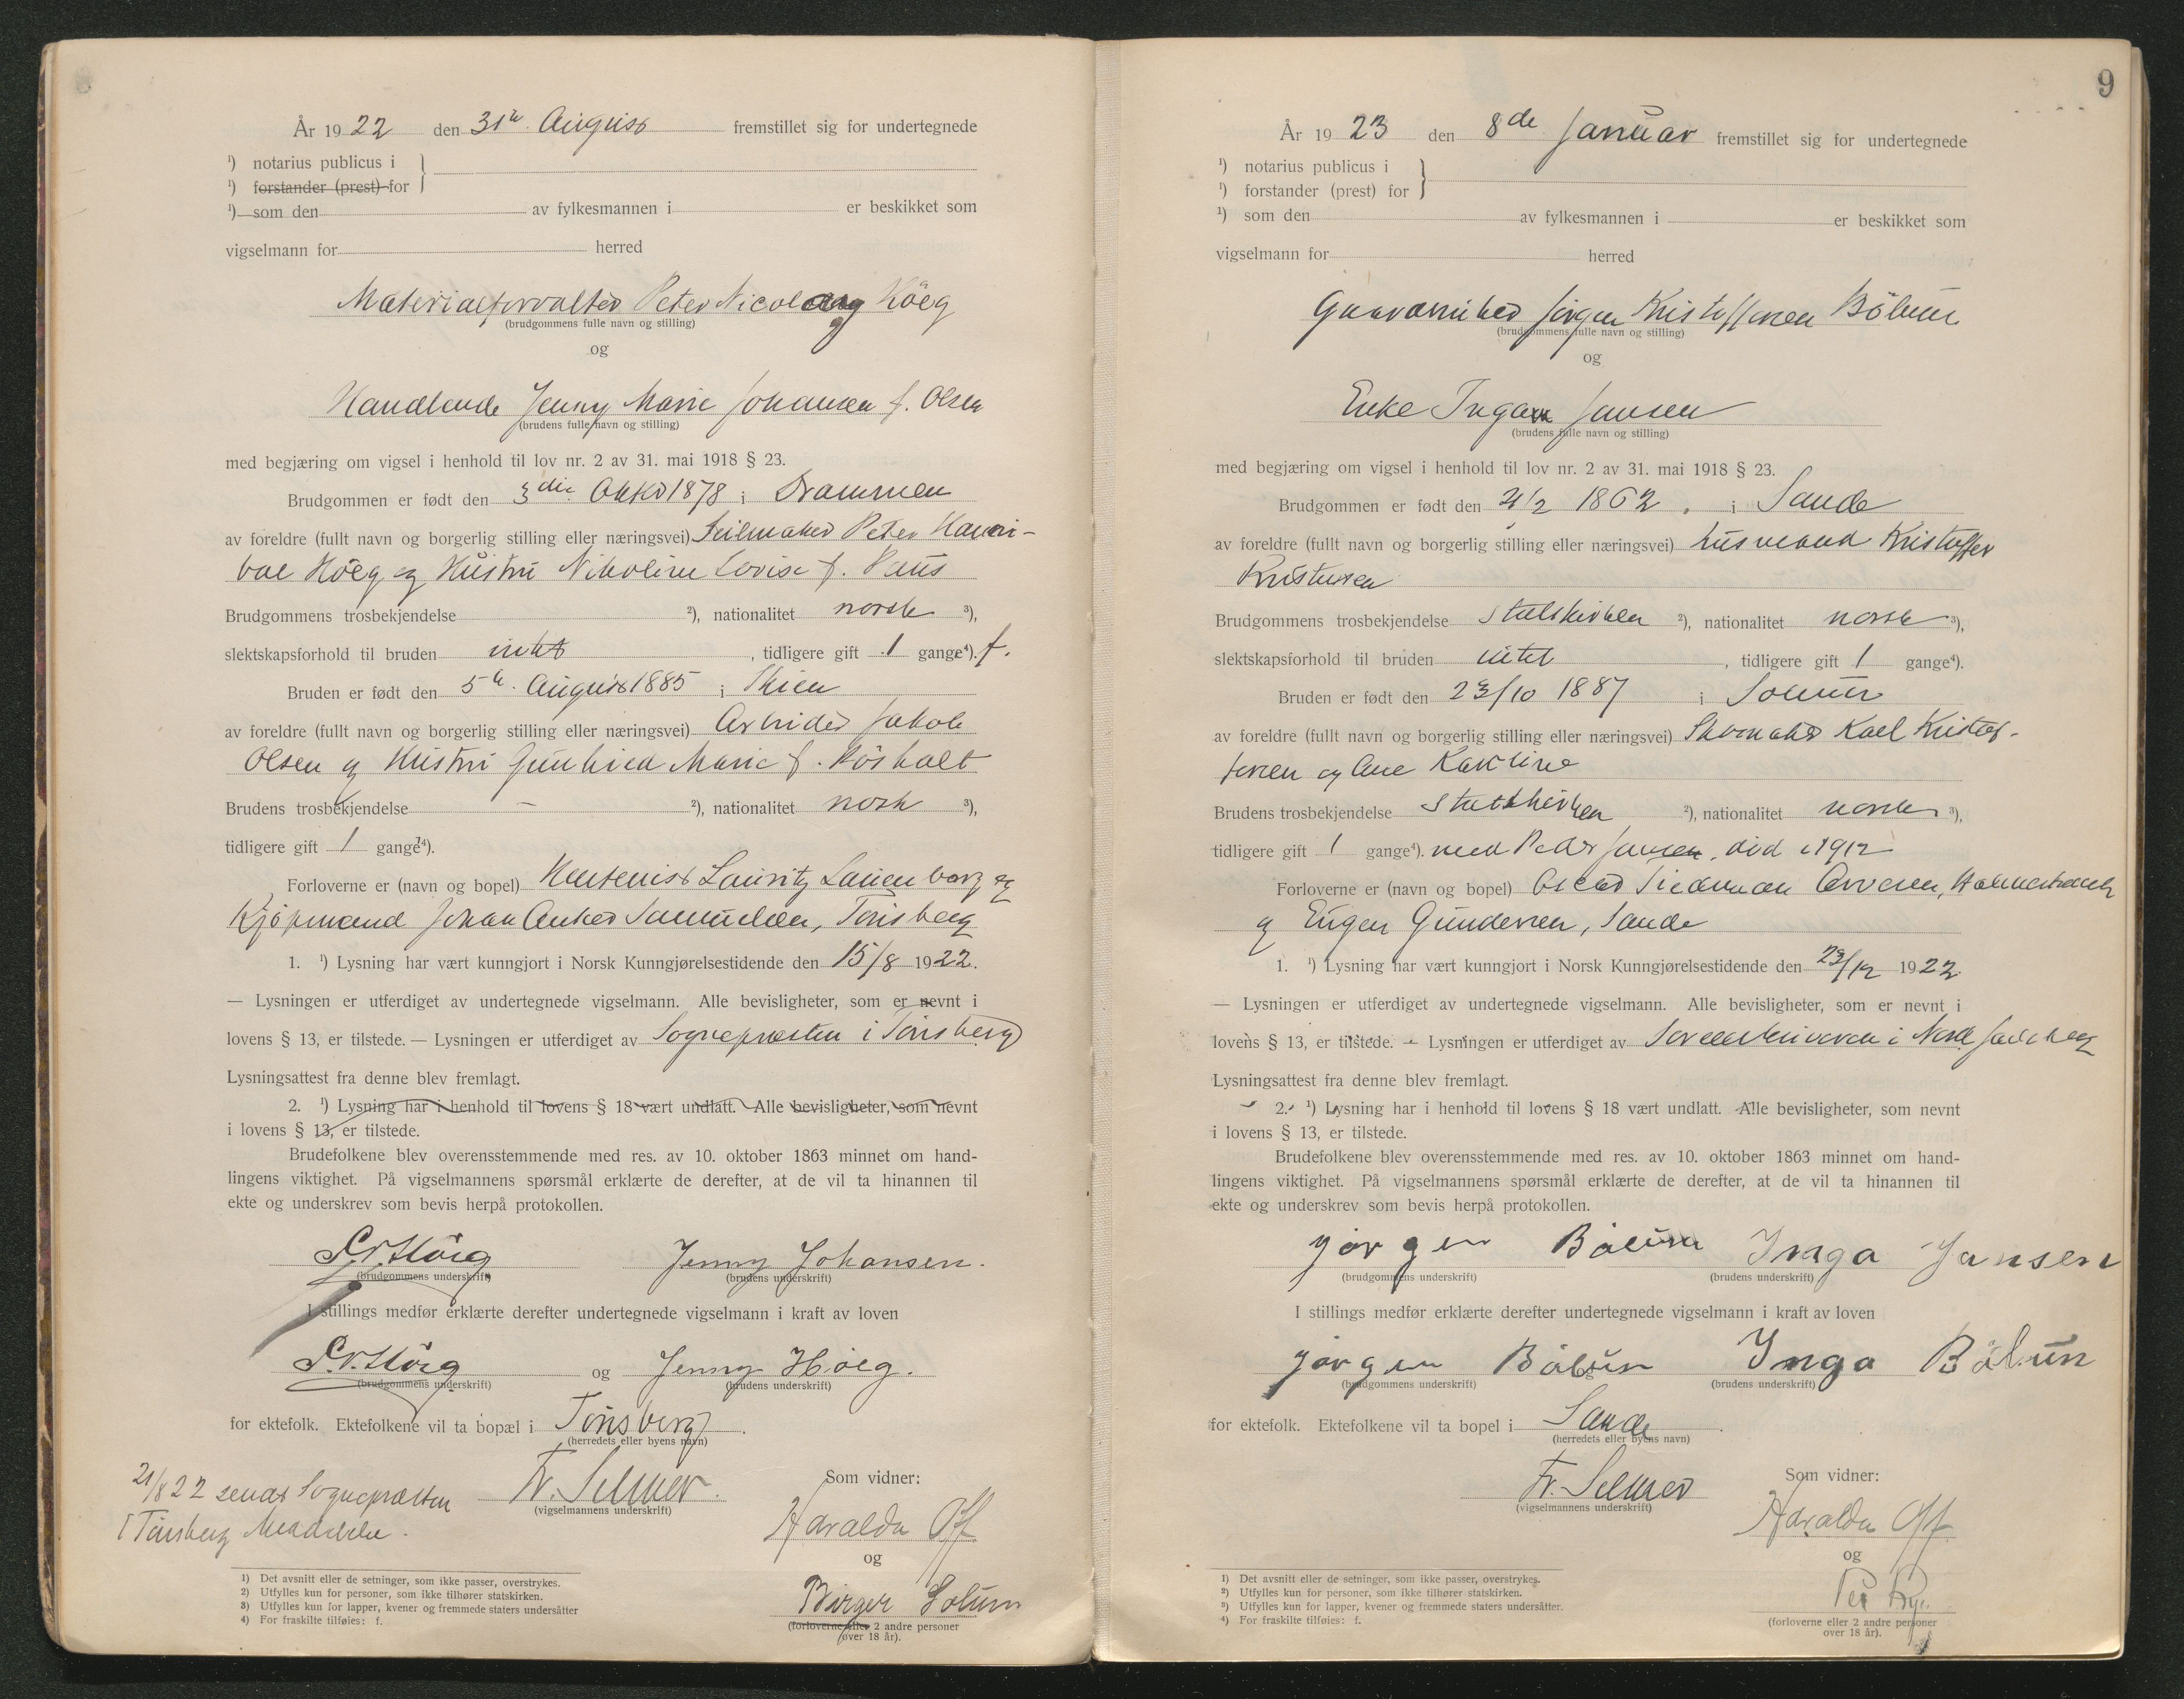 År 1922 den 31te August fremstillet sig for undertegnede
¹) notarius publicus i
¹) forstander (prest) for
¹) som den av fylkesmannen i er beskikket som
vigselmann for herred
Materialforvalter Peter Nicolay Höeg
(brudgommens fulle navn og stilling)
og
Handlende Jenny Marie Johansen f. Olsen
(brudens fulle navn og stilling)
med begjæring om vigsel i henhold til lov nr. 2 av 31. mai 1918 § 23.
Brudgommen er født den 3die Oktbr 1878 i Drammen
av foreldre (fullt navn og borgerlig stilling eller næringsvei) Seilmaker Peter Hanni-
bal Höeg og Hustru Nikoline Lovise f. Paus
Brudgommens trosbekjendelse ²), nationalitet norsk ³),
slektskapsforhold til bruden intet, tidligere gift 1 gange⁴). f.
Bruden er født den 5te August 1885 i Skien
av foreldre (fullt navn og borgerlig stilling eller næringsvei) Arbeider Jakob
Olsen og Hustru Gunhild Marie f. Rösholt
Brudens trosbekjendelse - ²), nationalitet norsk ³),
tidligere gift 1 gange⁴).
Forloverne er (navn og bopel) Lauritz og
Kjøpmand Johan Anker Samuelsen, Tönsberg
1. ¹) Lysning har vært kunngjort i Norsk Kunngjørelsestidende den 15/8 1922.
— Lysningen er utferdiget av undertegnede vigselmann. Alle bevisligheter, som er nevnt i
lovens § 13, er tilstede. — Lysningen er utferdiget av Sognepresten i Tönsberg
Lysningsattest fra denne blev fremlagt.
2. ¹) Lysning har i henhold til lovens § 18 vært undlatt. Alle bevisligheter, som nevnt
i lovens § 13, er tilstede.
Brudefolkene blev overensstemmende med res. av 10. oktober 1863 minnet om hand-
lingens viktighet. På vigselmannens spørsmål erklærte de derefter, at de vil ta hinannen til
ekte og underskrev som bevis herpå protokollen.
P. N. Höeg Jenny Johansen.
(brudgommens underskrift) (brudens underskrift)
I stillings medfør erklærte derefter undertegnede vigselmann i kraft av loven
P. N. Höeg og Jenny Höeg.
(brudgommens underskrift) (brudens underskrift)
for ektefolk. Ektefolkene vil ta bopæl i Tönsberg.
(herredets eller byens navn)
21/8 22 sendt Sognepresten
i Tönsberg Meddelelse.
Fr. Selmer.
(vigselmannens underskrift)
Som vidner:
Haralda Off
og
Birger Solum
(forloverne eller 2 andre personer
over 18 år).
1) Det avsnitt eller de setninger, som ikke passer, overstrykes.
2) Utfylles kun for personer, som ikke tilhører statskirken.
3) Utfylles kun for lapper, kvener og fremmede staters undersåtter
4) For fraskilte tilføies: f.
9
År 1923 den 8de Januar fremstillet sig for undertegnede
¹) notarius publicus i
¹) forstander (prest) for
¹) som den av fylkesmannen i er beskikket som
vigselmann for herred
Gaardarbeider Jörgen Kristoffersen Bölum
(brudgommens fulle navn og stilling)
og
Enke Inga Jansen
(brudens fulle navn og stilling)
med begjæring om vigsel i henhold til lov nr. 2 av 31. mai 1918 § 23.
Brudgommen er født den 4/2 1862. i Sande
av foreldre (fullt navn og borgerlig stilling eller næringsvei) husmand Kristoffer
Kristensen
Brudgommens trosbekjendelse Statskirken ²), nationalitet norsk ³),
slektskapsforhold til bruden intet, tidligere gift 1 gange⁴).
Bruden er født den 23/10 1887 i Solum
av foreldre (fullt navn og borgerlig stilling eller næringsvei) Skomaker Karl Kristof-
fersen og Ane Karoline
Brudens trosbekjendelse Statskirken ²), nationalitet norsk ³),
tidligere gift 1 gange⁴). med Peder Jansen, död i 1912
Forloverne er (navn og bopel) Oscar Arvesen, Holmestrand
og Eugen Gundersen, Sande
1. ¹) Lysning har vært kunngjort i Norsk Kunngjørelsestidende den 23/12 1922
— Lysningen er utferdiget av undertegnede vigselmann. Alle bevisligheter, som er nevnt i
lovens § 13, er tilstede. — Lysningen er utferdiget av Sorenskriveren i Nord Jarlsberg
Lysningsattest fra denne blev fremlagt.
2. ¹) Lysning har i henhold til lovens § 18 vært undlatt. Alle bevisligheter, som nevnt
i lovens § 13, er tilstede.
Brudefolkene blev overensstemmende med res. av 10. oktober 1863 minnet om hand-
lingens viktighet. På vigselmannens spørsmål erklærte de derefter, at de vil ta hinannen til
ekte og underskrev som bevis herpå protokollen.
Jørgen Bølum Inga Jansen
(brudgommens underskrift) (brudens underskrift)
I stillings medfør erklærte derefter undertegnede vigselmann i kraft av loven
Jørgen Bølum Inga Bølum
(brudgommens underskrift) (brudens underskrift)
for ektefolk. Ektefolkene vil ta bopel i Sande.
(herredets eller byens navn)
Fr. Selmer
(vigselmannens underskrift)
Som vidner:
Haralda Off
og
Per Rye.
(forloverne eller 2 andre personer
over 18 år).
1) Det avsnitt eller de setninger, som ikke passer, overstrykes.
2) Utfylles kun for personer, som ikke tilhører statskirken.
3) Utfylles kun for lapper, kvener og fremmede staters undersåtter.
4) For fraskilte tilføies: f.